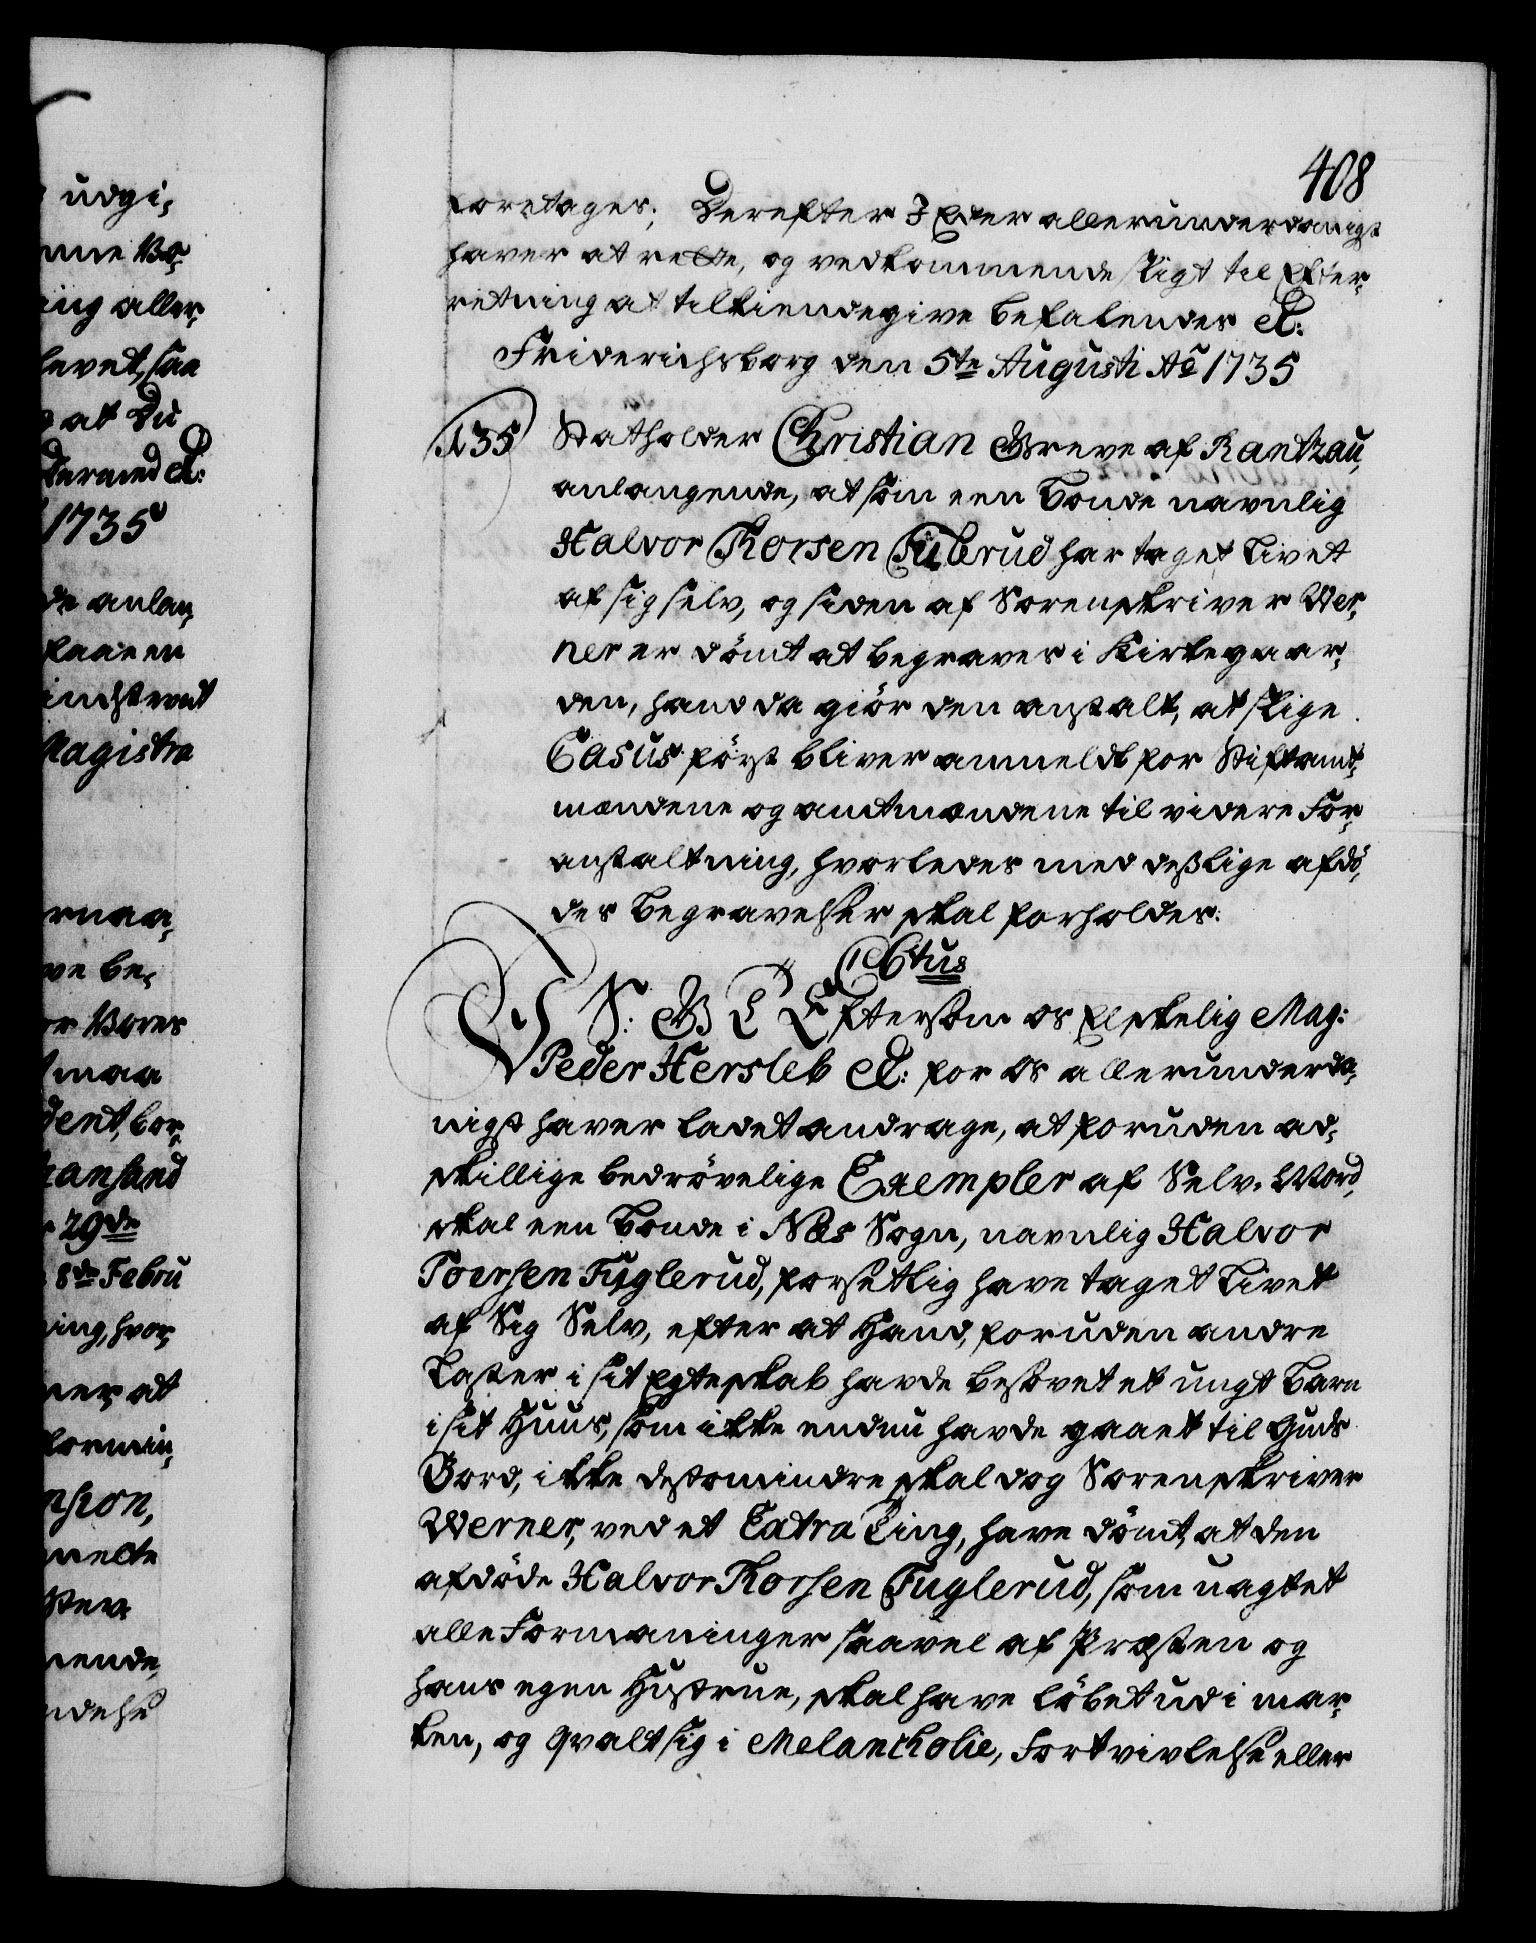 408
foretages; Derefter I Eder allerunderdanigst
haver at rette, og vedkommende sligt til Efter-
retning at tilkiendegive befalendes &c:
Friderichsborg den 5te Augusti Ao 1735
135
Statholder Christian Greve af Rantzau,
anlangende, at som een Bonde navnlig
Halvor Thorsen Fulerud har taget Livet
af sig selv, og siden af Sorenskriver Wer-
ner er dömt at begraves i Kirkegaar-
den, hand da giör den anstalt, at slige
Casus först bliver anmeldt for Stiftamt-
mændene og amtmændene til videre For-
anstaltning, hvorledes med desslige afdö-
des Begravelser skal forholdes.
C 6tus
V S: G T Eftersom os Elskelig Mag:
Peder Hersleb &c: for Os allerunderda-
nigst haver ladet andrage, at foruden ad-
skillige bedrövelige Exempler af Selv-Mord,
skal een Bonde i Næs Sogn, navnlig Halvor
Toersen Fuglerud, forsetlig have taget Livet
af Sig Selv, efter at Hand, foruden andre
Laster i sit Egteskab havde besovet et ungt Barn
i sit Huus, som ikke endnu havde gaaet til Guds
Bord, ikke destomindre skal dog Sorenskriver
Werner, ved et Extra Ting, have dömt, at den
afdöde Halvor Thorsen Fuglerud, som uagtet
alle Formaninger saavel af Præsten og
hans egen Hustrue, skal have löbet ud i mar-
ken, og qvalt sig i Melancholie, Fortvivlelse eller
udgi-
ing aller-
levet, saa
at Du
dermed &c:
1735
de anlan-
faaer en
Magistra
ve be-
or Vores
maa
dent, for-
iansand
29de
8de Febru
ing, hvor-
ner, at
nsion,
nelte
nende
ndelse